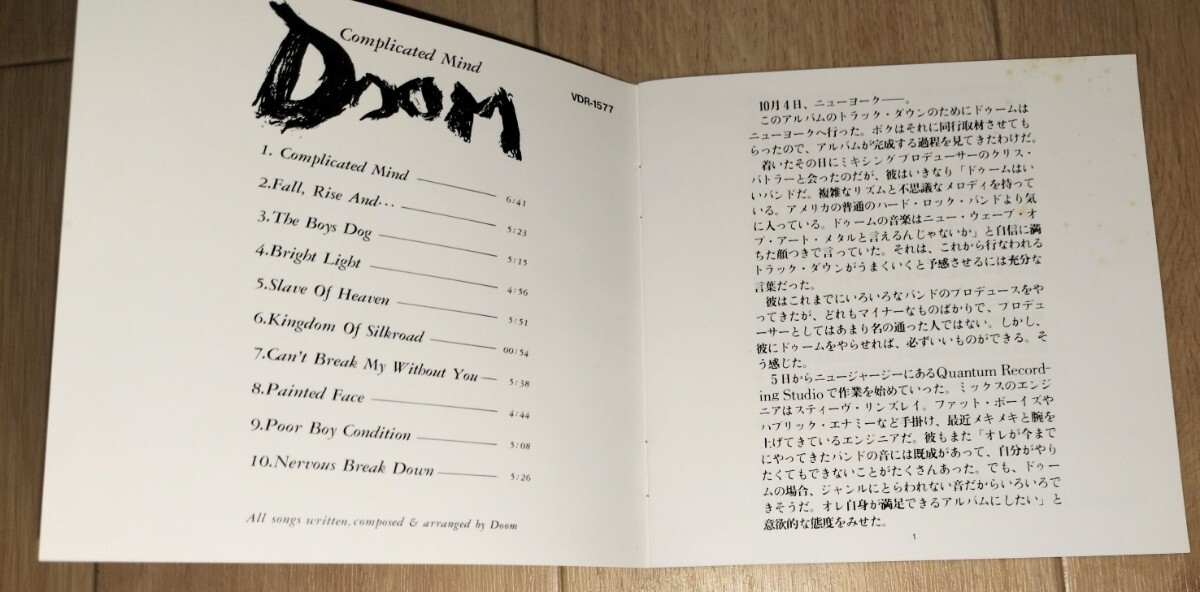 Complicated Mind
DOOM
VDR-1577
1. Complicated Mind 6:41
2.Fall, Rise And... 5:23
3.The Boys Dog 5:15
4.Bright Light 4:56
5.Slave Of Heaven 5:51
6.Kingdom Of Silkroad 00:54
7.Can't Break My Without You 5:38
8.Painted Face 4:44
9.Poor Boy Condition 5:08
10.Nervous Break Down 5:26
All songs written, composed & arranged by Doom
10月4日、ニューヨーク──。
このアルバムのトラック・ダウンのためにドゥームは
ニューヨークへ行った。ボクはそれに同行取材させても
らったので、アルバムが完成する過程を見てきたわけだ。
着いたその日にミキシングプロデューサーのクリス・
バトラーと会ったのだが、彼はいきなり「ドゥームはい
いバンドだ。複雑なリズムと不思議なメロディを持って
いる。アメリカの普通のハード・ロック・バンドより気
に入っている。ドゥームの音楽はニュー・ウェーブ・オ
ブ・アート・メタルと言えるんじゃないか」と自信に満
ちた顔つきで言っていた。それは、これから行なわれる
トラック・ダウンがうまくいくと予感させるには充分な
言葉だった。
彼はこれまでにいろいろなバンドのプロデュースをや
ってきたが、どれもマイナーなものばかりで、プロデュ
ーサーとしてはあまり名の通った人ではない。しかし、
彼にドゥームをやらせれば、必ずいいものができる。そ
う感じた。
5日からニュージャージーにあるQuantum Record-
ing Studioで作業を始めていった。ミックスのエンジ
ニアはスティーヴ・リンズレイ。ファット・ボーイズや
パブリック・エナミーなど手掛け、最近メキメキと腕を
上げてきているエンジニアだ。彼もまた「オレが今まで
にやってきたバンドの音には既成があって、自分がやり
たくてもできないことがたくさんあった。でも、ドゥー
ムの場合、ジャンルにとらわれない音だからいろいろで
きそうだ。オレ自身が満足できるアルバムにしたい」と
意欲的な態度をみせた。
1